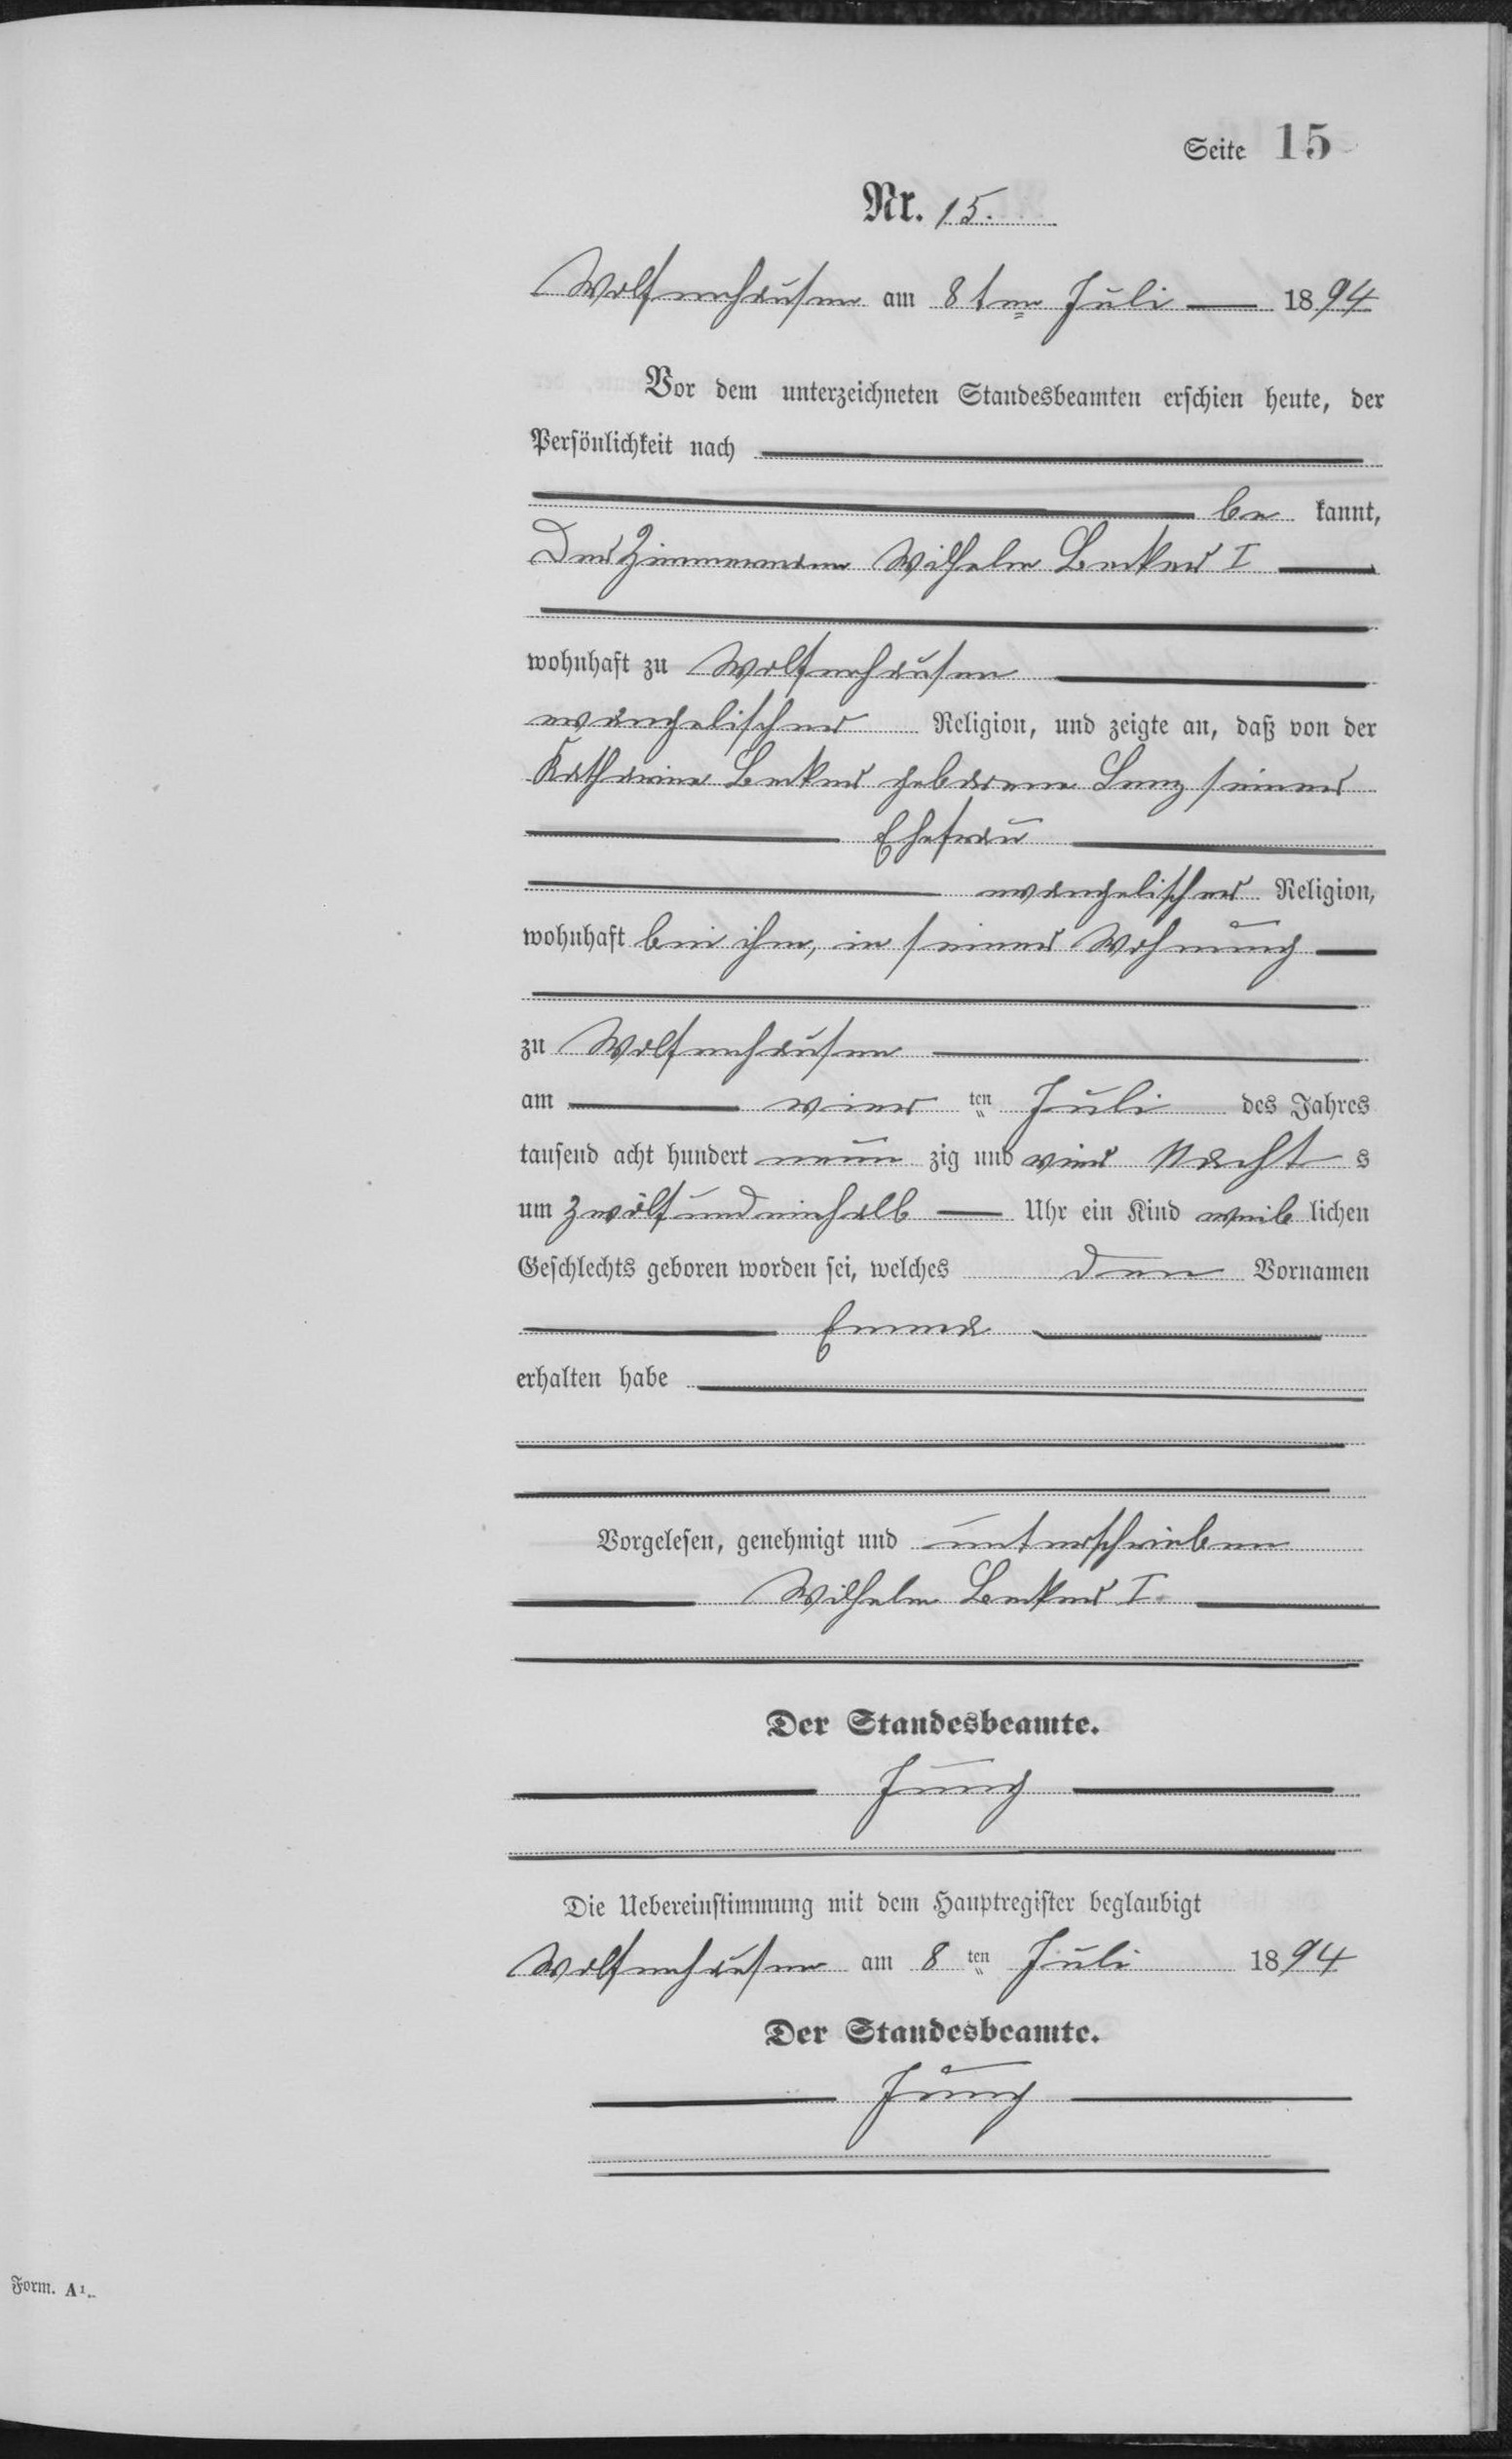 Seite 15
Nr. 15.
Wolfenhausen am 8ten Juli 1894
Vor dem unterzeichneten Standesbeamten erschien heute, der
Persönlichkeit nach
be kannt,
Der Zimmermann Wilhelm Becker I
wohnhaft zu Wolfenhausen
evangelischer Religion, und zeigte an, daß von der
Katharine Becker geborene Lenz seiner
Ehefrau
evangelischer Religion,
wohnhaft bei ihm, in seiner Wohnung
zu Wolfenhausen
am vier ten Juli des Jahres
tausend acht hundert neun zig und vier Nacht s
um zwölfundeinhalb Uhr ein Kind weib lichen
Geschlechts geboren worden sei, welches den Vornamen
Emma
erhalten habe
Vorgelesen, genehmigt und unterschrieben
Wilhelm Becker I.
Der Standesbeamte.
Jung
Die Uebereinstimmung mit dem Hauptregister beglaubigt
Wolfenhausen am 8 ten Juli 1894
Der Standesbeamte.
Jung
Form. A1.